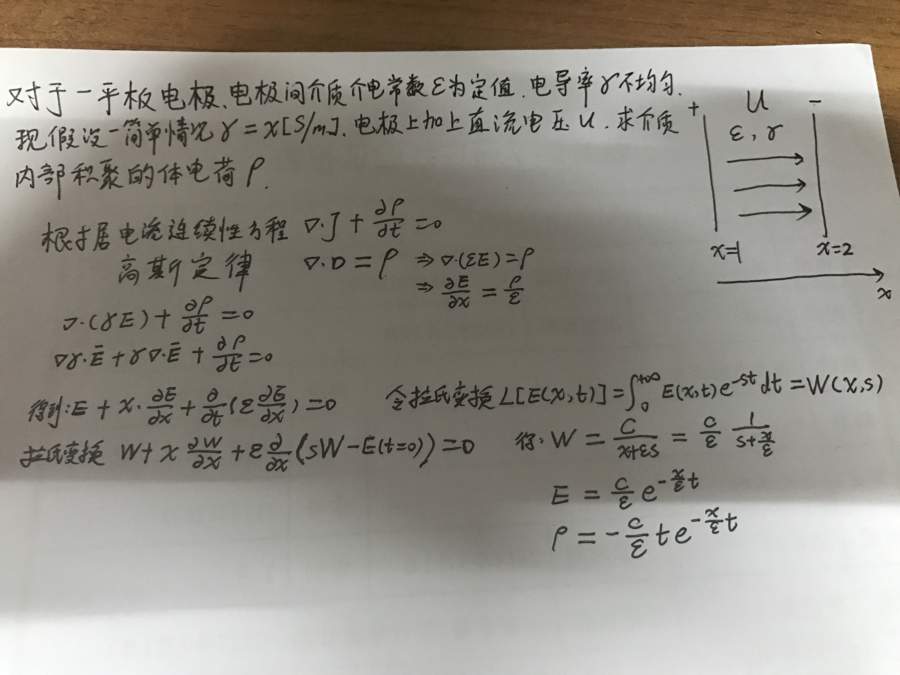 对于一平板电极、电极间介质介电常数ε为定值,电导率γ不均匀.
现假设一简单情况γ=x[S/m],电极上加上直流电压U,求介质
内部积聚的体电荷ρ.
+ U -
ε,γ
x=1 x=2
x
根据电流连续性方程 ∇·J+∂ρ/∂t=0
高斯定律 ∇·D=ρ ⇒∇·(εE)=ρ
⇒∂E/∂x=ρ/ε
∇·(γE)+∂ρ/∂t=0
∇γ·Ē+γ∇·Ē+∂ρ/∂t=0
得到:E+x·∂E/∂x+∂/∂t(ε∂E/∂x)=0
令拉氏变换L[E(x,t)]=∫₀^{+∞}E(x,t)e^{-st}dt=W(x,s)
拉氏变换 W+x∂W/∂x+ε∂/∂x(sW-E(t=0))=0
得:W=C/(x+εs)=C/ε 1/(s+x/ε)
E=C/ε e^{-x/ε t}
ρ=-C/ε te^{-x/ε t}